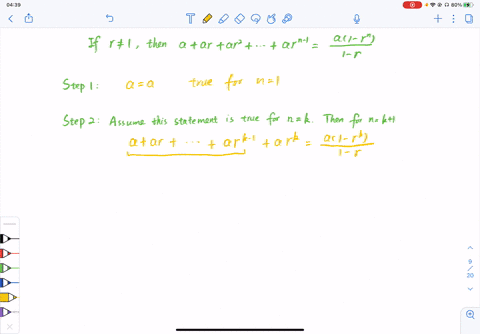 04:39
80%
If r≠1, then a+ar+ar²+⋯+arⁿ⁻¹ = a(1-rⁿ)/1-r
Step 1: a=a true for n=1
Step 2: Assume this statement is true for n=k. Then for n=k+1
a+ar+⋯+ar^(k-1)+ar^k = a(1-r^k)/1-r
9
/
20